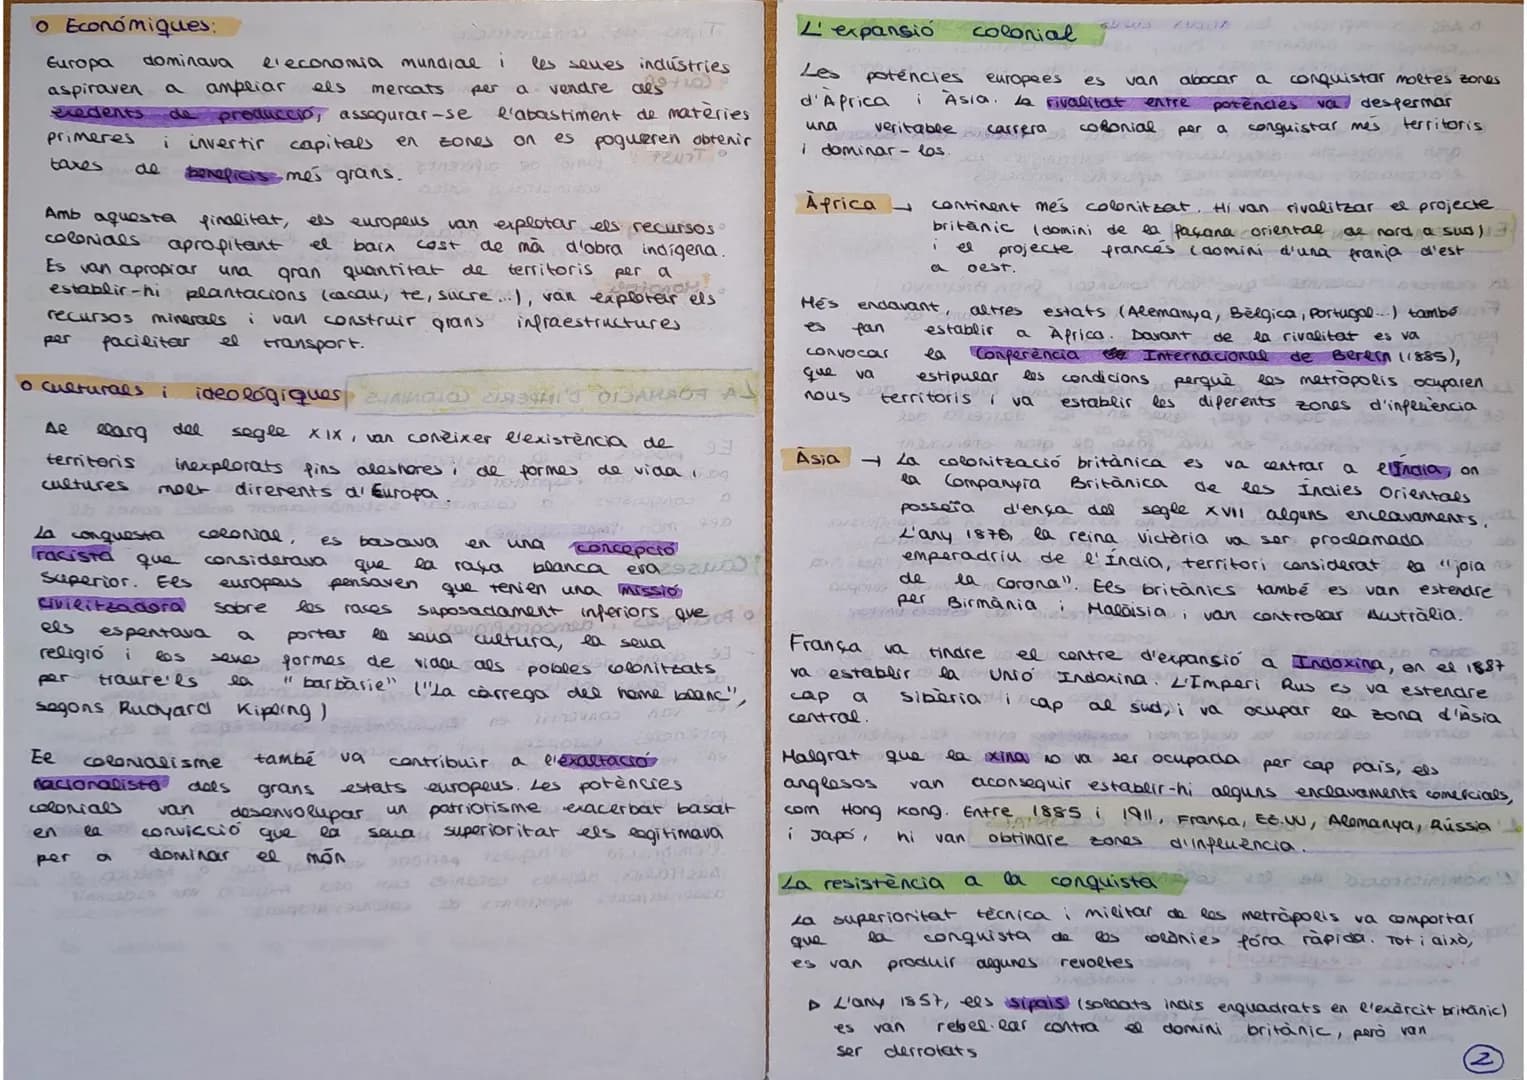 o Económiques:
Europa dominava l'economia mundial i les seues indústries
aspiraven a ampliar els mercats per a vendre els
excedents de producció, assegurar-se l'abastiment de matèries
primeres i invertir capitals en zones on es pogueren obtenir
taxes de beneficis més grans.
Amb aquesta finalitat, els europeus van explotar els recursos
colonials apropitant el baix cost de mà d'obra indígena.
Es van apropiar una gran quantitat de territoris per a
establir-hi plantacions (cacau, te, sucre...), van explotar els
recursos minerals i van construir grans infraestructures
per facilitar el transport.
o Culturals i ideològiques
Al llarg del segle XIX, van conèixer l'existència de
territoris inexplorats fins aleshores, de formes de vida i
cultures molt direrents d'Europa.
La conquesta colonial, es basava en una concepció
racista que considerava que la raça blanca era
superior. Els europeus pensaven que tenien una missió
civilitzadora sobre les races suposadament inferiors, que
els espentava a portar la seua cultura, la seua
religió i les seues formes de vida als pobles colonitzats
per traure'ls la "barbàrie" ("La càrrega del home blanc",
segons Rudyard Kipling)
El colonialisme també va contribuir a l'exaltació
nacionalista dels grans estats europeus. Les potències
colonials van desenvolupar un patriotisme exacerbat basat
en la convicció que la seua superioritat els legitimava
per a dominar el món
L'expansió colonial
Les potències europees es van abocar a conquistar moltes zones
d'Àfrica i Àsia. La rivalitat entre potències va despermar
una veritable carrera colonial per a conquistar més territoris
i dominar-los.
Àfrica → continent més colonitzat. Hi van rivalitzar el projecte
britànic (domini de la façana oriental de nord a sud)
i el projecte francés (domini d'una franja d'est
a oest.
Més endavant, altres estats (Alemanya, Bèlgica, Portugal...) també
es fan establir a Àfrica. Davant de la rivalitat es va
convocar la Conferència Internacional de Berlín (1885),
que va estipular les condicions perquè les metròpolis ocuparen
nous territoris i va establir les diferents zones d'influència
Àsia → La colonització britànica es va centrar a l'Índia, on
la Companyia Britànica de les Índies Orientals
posseïa d'ença del segle XVII alguns enclavaments.
L'any 1876, la reina Victòria va ser proclamada
emperadriu de l'Índia, territori considerat la "joia
de la corona". Els britànics també es van estendre
per Birmània i Malàisia i van controlar Austràlia.
França va tindre el centre d'expansió a Indoxina, on el 1887
va establir la Unió Indoxina. L'Imperi Rus es va estendre
cap a Sibèria i cap al sud, i va ocupar la zona d'Àsia
central.
Malgrat que la xina no va ser ocupada per cap país, els
anglesos van aconseguir establir-hi alguns enclavaments comercials,
com Hong Kong. Entre 1885 i 1911, França, EE.UU, Alemanya, Rússia
i Japó, hi van obtindre zones d'influència.
La resistència a la conquista
La superioritat tècnica i militar de les metròpolis va comportar
que la conquista de les colònies fóra ràpida. Tot i això,
es van produir algunes revoltes
▷ L'any 1857, els sipais (soldats indis enquadrats en l'exèrcit britànic)
es van rebel·lar contra el domini britànic, però van
ser derrotats
2